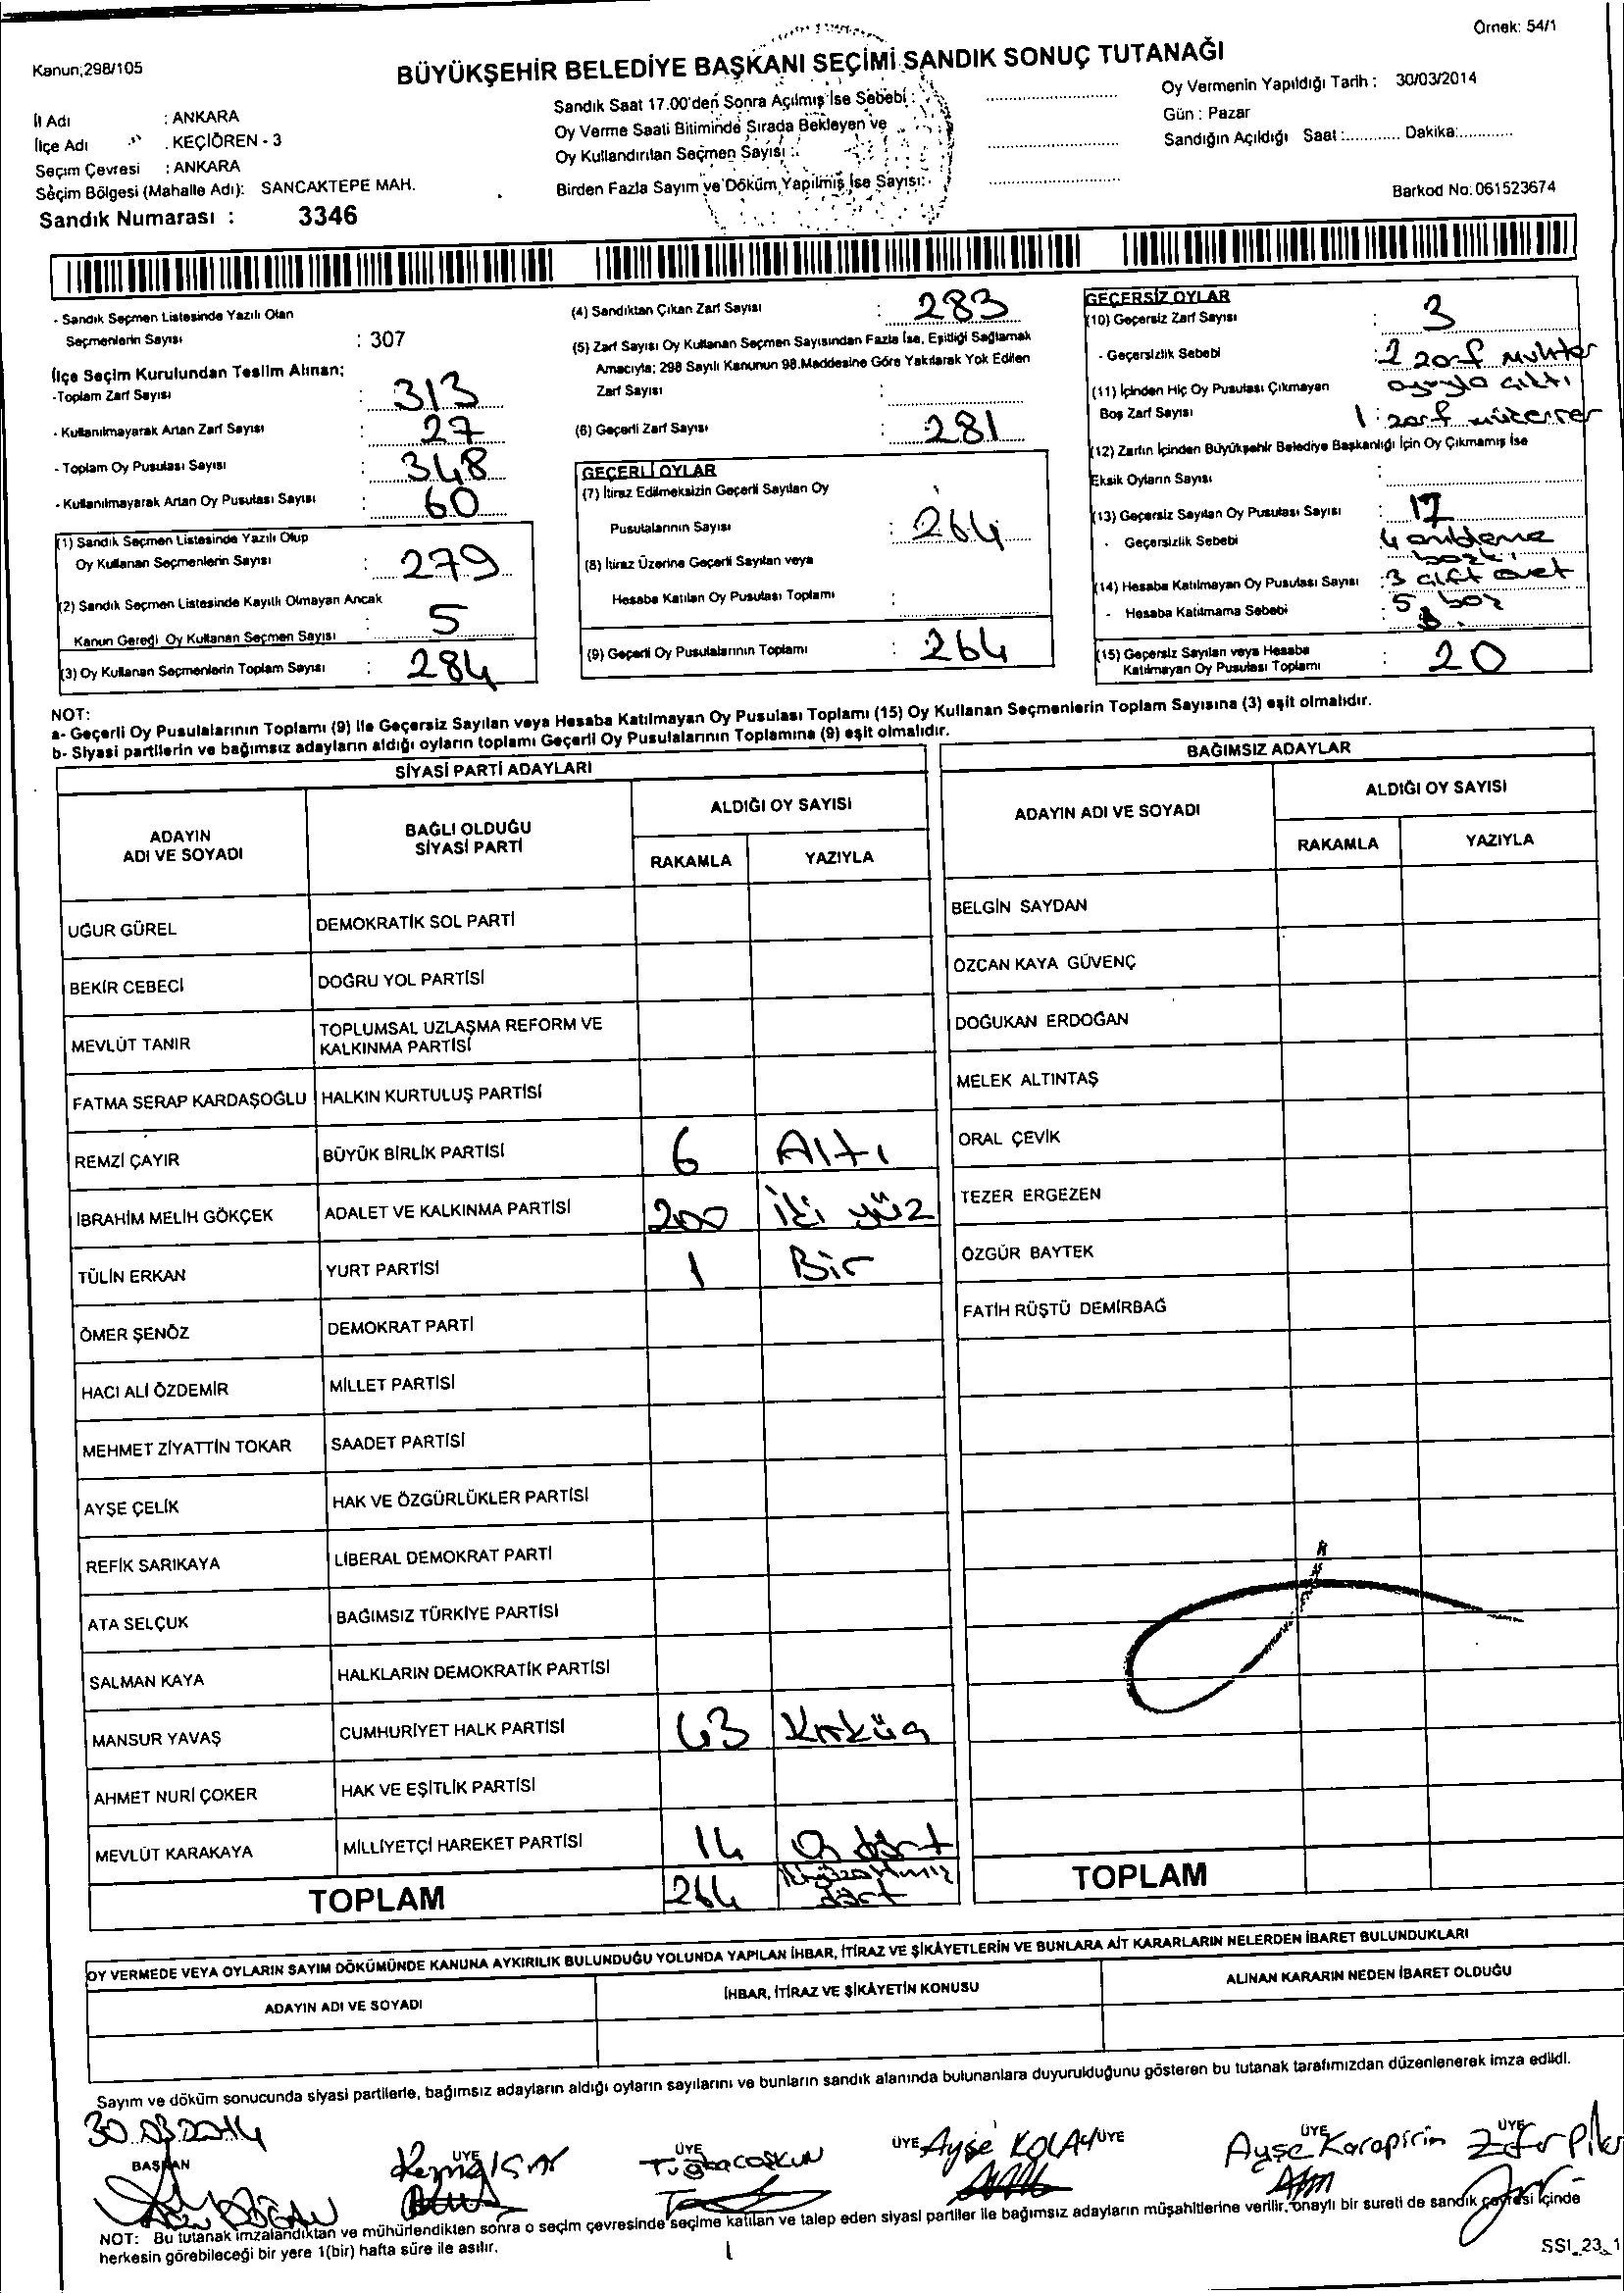 Örnek: 54/1
Kanun;298/105
BÜYÜKŞEHİR BELEDİYE BAŞKANI SEÇİMİ SANDIK SONUÇ TUTANAĞI
İl Adı : ANKARA
İlçe Adı : KEÇİÖREN - 3
Seçim Çevresi : ANKARA
Seçim Bölgesi (Mahalle Adı): SANCAKTEPE MAH.
Sandık Numarası : 3346
Sandık Saat 17.00'den Sonra Açılmış İse Sebebi :
Oy Verme Saati Bitiminde Sırada Bekleyen ve
Oy Kullandırılan Seçmen Sayısı :
Birden Fazla Sayım ve Döküm Yapılmış İse Sayısı:
Oy Vermenin Yapıldığı Tarih : 30/03/2014
Gün : Pazar
Sandığın Açıldığı Saat :............ Dakika:............
Barkod No: 061523674
- Sandık Seçmen Listesinde Yazılı Olan
Seçmenlerin Sayısı : 307
İlçe Seçim Kurulundan Teslim Alınan;
-Toplam Zarf Sayısı : 313
- Kullanılmayarak Artan Zarf Sayısı : 27
- Toplam Oy Pusulası Sayısı : 348
- Kullanılmayarak Artan Oy Pusulası Sayısı : 60
(1) Sandık Seçmen Listesinde Yazılı Olup
Oy Kullanan Seçmenlerin Sayısı : 279
(2) Sandık Seçmen Listesinde Kayıtlı Olmayan Ancak
Kanun Gereği Oy Kullanan Seçmen Sayısı : 5
(3) Oy Kullanan Seçmenlerin Toplam Sayısı : 284
(4) Sandıktan Çıkan Zarf Sayısı : 283
(5) Zarf Sayısı Oy Kullanan Seçmen Sayısından Fazla İse, Eşitliği Sağlamak
Amacıyla; 298 Sayılı Kanunun 98.Maddesine Göre Yakılarak Yok Edilen
Zarf Sayısı :
(6) Geçerli Zarf Sayısı : 281
GEÇERLİ OYLAR
(7) İtiraz Edilmeksizin Geçerli Sayılan Oy
Pusulalarının Sayısı : 264
(8) İtiraz Üzerine Geçerli Sayılan veya
Hesaba Katılan Oy Pusulası Toplamı :
(9) Geçerli Oy Pusulalarının Toplamı : 264
GEÇERSİZ OYLAR
(10) Geçersiz Zarf Sayısı : 3
- Geçersizlik Sebebi : 2 zarf muhtar
(11) İçinden Hiç Oy Pusulası Çıkmayan oyuyla çıktı
Boş Zarf Sayısı 1 : zarf mükerrer
(12) Zarfın İçinden Büyükşehir Belediye Başkanlığı İçin Oy Çıkmamış İse
Eksik Oyların Sayısı :
(13) Geçersiz Sayılan Oy Pusulası Sayısı : 17
- Geçersizlik Sebebi
(14) Hesaba Katılmayan Oy Pusulası Sayısı : 3 çift evet
- Hesaba Katılmama Sebebi : 5 boz
(15) Geçersiz Sayılan veya Hesaba
Katılmayan Oy Pusulası Toplamı : 20
NOT:
a- Geçerli Oy Pusulalarının Toplamı (9) ile Geçersiz Sayılan veya Hesaba Katılmayan Oy Pusulası Toplamı (15) Oy Kullanan Seçmenlerin Toplam Sayısına (3) eşit olmalıdır.
b- Siyasi partilerin ve bağımsız adayların aldığı oyların toplamı Geçerli Oy Pusulalarının Toplamına (9) eşit olmalıdır.
SİYASİ PARTİ ADAYLARI
ADAYIN ADI VE SOYADI
BAĞLI OLDUĞU SİYASİ PARTİ
ALDIĞI OY SAYISI
RAKAMLA YAZIYLA
UĞUR GÜREL DEMOKRATİK SOL PARTİ
BEKİR CEBECİ DOĞRU YOL PARTİSİ
MEVLÜT TANIR TOPLUMSAL UZLAŞMA REFORM VE
KALKINMA PARTİSİ
FATMA SERAP KARDAŞOĞLU HALKIN KURTULUŞ PARTİSİ
REMZİ ÇAYIR BÜYÜK BİRLİK PARTİSİ 6 Altı
İBRAHİM MELİH GÖKÇEK ADALET VE KALKINMA PARTİSİ 200 iki yüz
TÜLİN ERKAN YURT PARTİSİ 1 Bir
ÖMER ŞENÖZ DEMOKRAT PARTİ
HACI ALİ ÖZDEMİR MİLLET PARTİSİ
MEHMET ZİYATTİN TOKAR SAADET PARTİSİ
AYŞE ÇELİK HAK VE ÖZGÜRLÜKLER PARTİSİ
REFİK SARIKAYA LİBERAL DEMOKRAT PARTİ
ATA SELÇUK BAĞIMSIZ TÜRKİYE PARTİSİ
SALMAN KAYA HALKLARIN DEMOKRATİK PARTİSİ
MANSUR YAVAŞ CUMHURİYET HALK PARTİSİ 43 Kırküç
AHMET NURİ ÇOKER HAK VE EŞİTLİK PARTİSİ
MEVLÜT KARAKAYA MİLLİYETÇİ HAREKET PARTİSİ 14 On dört
TOPLAM 264 ikiyüzaltmış
dört
BAĞIMSIZ ADAYLAR
ADAYIN ADI VE SOYADI
ALDIĞI OY SAYISI
RAKAMLA YAZIYLA
BELGİN SAYDAN
ÖZCAN KAYA GÜVENÇ
DOĞUKAN ERDOĞAN
MELEK ALTINTAŞ
ORAL ÇEVİK
TEZER ERGEZEN
ÖZGÜR BAYTEK
FATİH RÜŞTÜ DEMİRBAĞ
TOPLAM
OY VERMEDE VEYA OYLARIN SAYIM DÖKÜMÜNDE KANUNA AYKIRILIK BULUNDUĞU YOLUNDA YAPILAN İHBAR, İTİRAZ VE ŞİKÂYETLERİN VE BUNLARA AİT KARARLARIN NELERDEN İBARET BULUNDUKLARI
ADAYIN ADI VE SOYADI İHBAR, İTİRAZ VE ŞİKÂYETİN KONUSU ALINAN KARARIN NEDEN İBARET OLDUĞU
Sayım ve döküm sonucunda siyasi partilerle, bağımsız adayların aldığı oyların sayılarını ve bunların sandık alanında bulunanlara duyurulduğunu gösteren bu tutanak tarafımızdan düzenlenerek imza edildi.
30.03.2014
BAŞKAN ÜYE ÜYE ÜYE ÜYE ÜYE ÜYE
Tuğba COŞKUN Ayşe KOLAY Ayşe Karapirin
NOT: Bu tutanak imzalandıktan ve mühürlendikten sonra o seçim çevresinde seçime katılan ve talep eden siyasi partiler ile bağımsız adayların müşahitlerine verilir, onaylı bir sureti de sandık çevresi içinde
herkesin görebileceği bir yere 1(bir) hafta süre ile asılır.
SSI_23_1